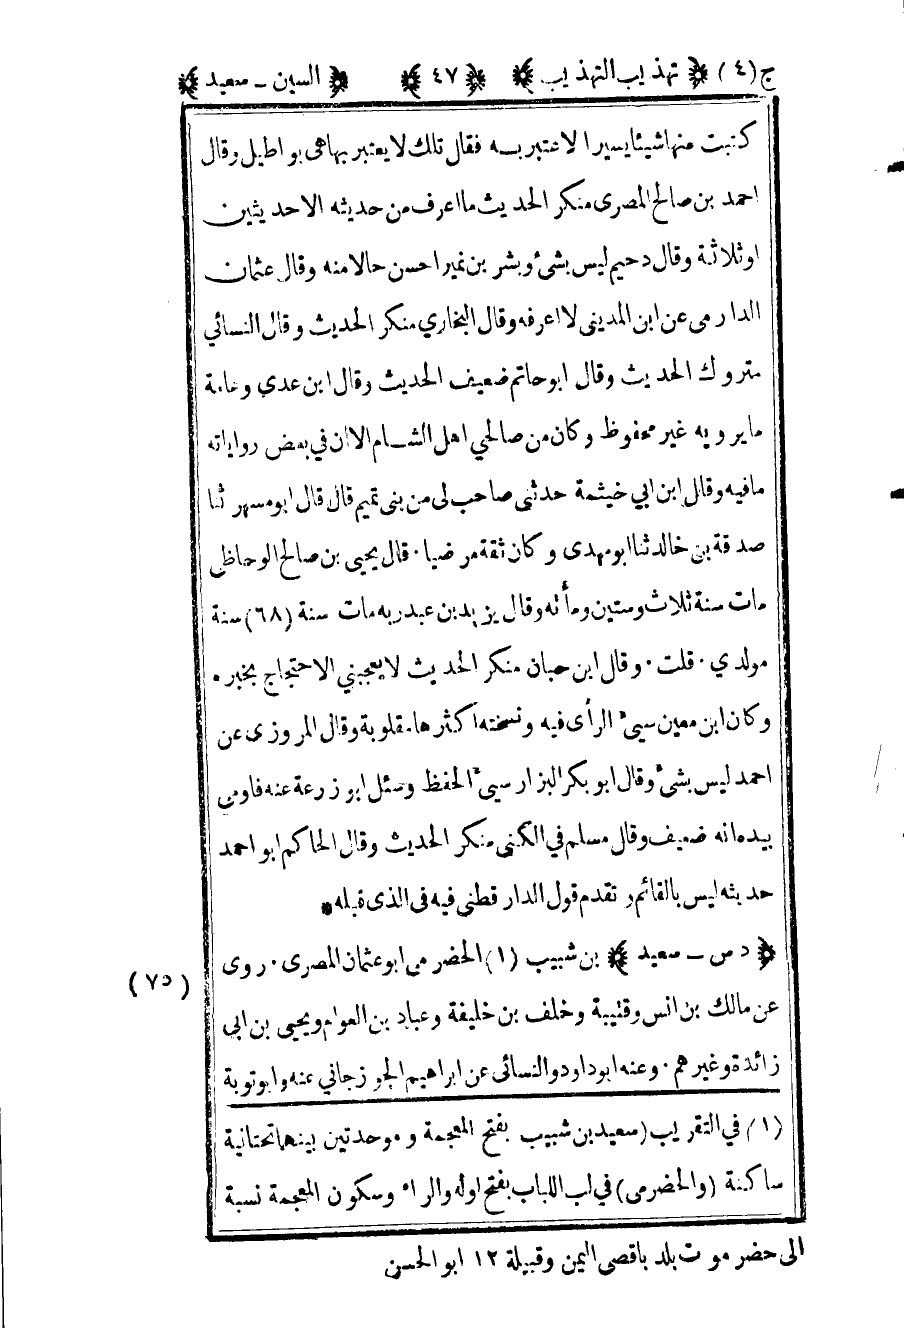 ج (٤) ﴿ تهذيب التهذيب ﴾ ﴿ ٤٧ ﴾ ﴿ السين ـ سعيد ﴾
كتبت منها شيئا يسيرا لاعتبر به فقال تلك لا يعتبر بها هى بواطيل وقال
احمد بن صالح المصرى منكر الحديث ما اعرف من حديثه الا حديثين
او ثلاثة وقال دحيم ليس بشئ وبشر بن نمير احسن حالا منه وقال عثمان
الدارمى عن ابن المدينى لا اعرفه وقال البخاري منكر الحديث وقال النسائي
متروك الحديث وقال ابو حاتم ضعيف الحديث وقال ابن عدى وعامة
ما يرويه غير محفوظ وكان من صالحي اهل الشام الا ان في بعض رواياته
ما فيه وقال ابن ابي خيثمة حدثنى صاحب لى من بنى تميم قال قال ابو مسهر ثنا
صدقة بن خالد ثنا ابو مهدى وكان ثقة مرضيا ٠ قال يحيى بن صالح الوحاظى
مات سنة ثلاث وستين ومأته وقال يزيد بن عبد ربه مات سنة (٦٨) سنة
مولدي ٠ قلت ٠ وقال ابن حبان منكر الحديث لا يعجبني الاحتجاج بخبره
وكان ابن معين سيئ الرأى فيه ونسخته اكثرها مقلوبة وقال المروزى عن
احمد ليس بشئ وقال ابو بكر البزار سيئ الحفظ وسئل ابو زرعة عنه فاومى
بيده انه ضعيف وقال مسلم في الكنى منكر الحديث وقال الحاكم ابو احمد
حديثه ليس بالقائم وتقدم قول الدارقطنى فيه فى الذى قبله *
﴿ د س ـ سعيد ﴾ بن شبيب (١) الحضرمى ابو عثمان المصرى ٠ روى
(٧٥)
عن مالك بن انس وقتيبة وخلف بن خليفة وعباد بن العوام ويحيى بن ابى
زائدة وغيرهم ٠ وعنه ابوداود والنسائى عن ابراهيم الجوزجاني عنه وابو توبة
(١) في التقريب (سعيد بن شبيب بفتح المعجمة وموحدتين بينهما تحتانية
ساكنة (والحضرمى) في لب اللباب بفتح اوله والراء وسكون المعجمة نسبة
الى حضرموت بلد باقصى اليمن وقبيلة ١٢ ابو الحسن